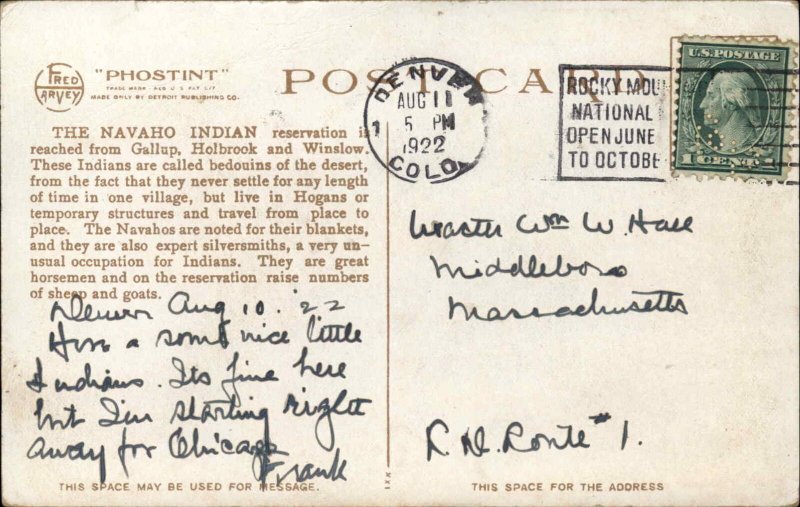 FRED
HARVEY
"PHOSTINT"
TRADE MARK REG U S PAT OFF
MADE ONLY BY DETROIT PUBLISHING CO.
POST CARD
DENVER
AUG 11
1 5 PM
1922
COLO.
ROCKY MOU
NATIONAL
OPEN JUNE
TO OCTOBE
U.S. POSTAGE
1 CENT 1
THE NAVAHO INDIAN reservation is
reached from Gallup, Holbrook and Winslow.
These Indians are called bedouins of the desert,
from the fact that they never settle for any length
of time in one village, but live in Hogans or
temporary structures and travel from place to
place. The Navahos are noted for their blankets,
and they are also expert silversmiths, a very un-
usual occupation for Indians. They are great
horsemen and on the reservation raise numbers
of sheep and goats.
Denver Aug 10. '22
a some nice little
Indians. Its fine here
but I'm starting right
away for Chicago
Frank
THIS SPACE MAY BE USED FOR MESSAGE.
Master Wm W. Hall
Middleboro
Massachusetts
R. D. Route #1.
THIS SPACE FOR THE ADDRESS